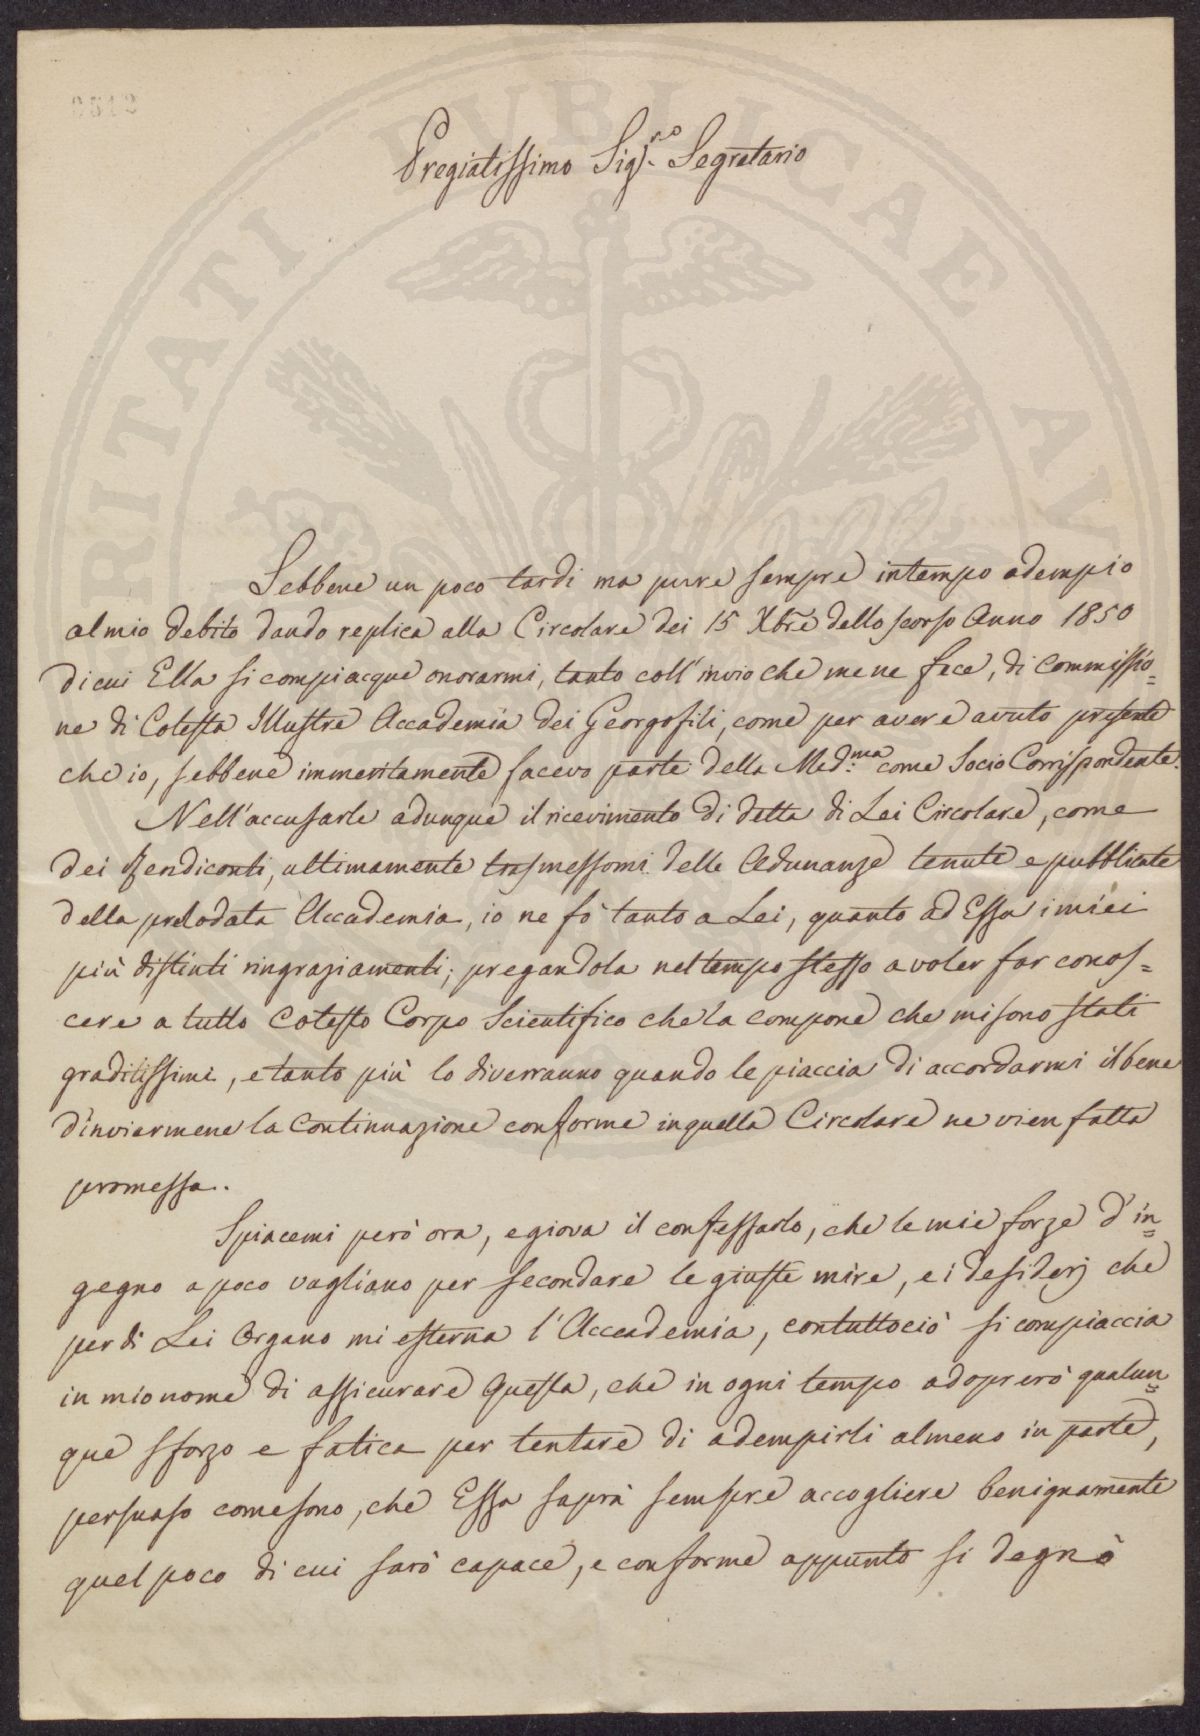 PVBLICAE
RITATI
AV
Pregiatissimo Sig.re Segretario
Sebbene un poco tardi ma pure sempre in tempo adempio
al mio debito dando replica alla Circolare dei 15 Xbre dello scorso Anno 1850
di cui Ella si compiacque onorarmi, tanto coll' invio che me ne fece, di Commissio=
ne di Cotesta Illustre Accademia dei Georgofili, come per avere avuto presente
che io, sebbene immeritamente facevo parte della Med.ma come Socio Corrispondente.
Nell'accusarle adunque il ricevimento di detta di Lei Circolare, come
dei Rendiconti, ultimamente trasmessomi delle Adunanze tenute e pubblicate
della prelodata Accademia, io ne fò tanto a Lei, quanto ad Essa i miei
più distinti ringraziamenti; pregandola nel tempo stesso a voler far conos=
cere a tutto cotesto Corpo Scientifico che la compone che mi sono stati
graditissimi, e tanto più lo diverranno quando le piaccia di accordarmi il bene
d'inviarmene la continuazione conforme in quella Circolare ne vien fatta
promessa.
Spiacemi però ora, e giova il confessarlo, che le mie forze d'in=
gegno a poco vagliano per secondare le giuste mire, e i desiderj che
per di Lei Organo mi esterna l'Accademia, contuttociò si compiaccia
in mio nome di assicurare questa, che in ogni tempo adoprerò qualun=
que sforzo e fatica per tentare di adempirli almeno in parte,
persuaso come sono, che Essa saprà sempre accogliere benignamente
quel poco di cui sarò capace, e conforme appunto si degnò